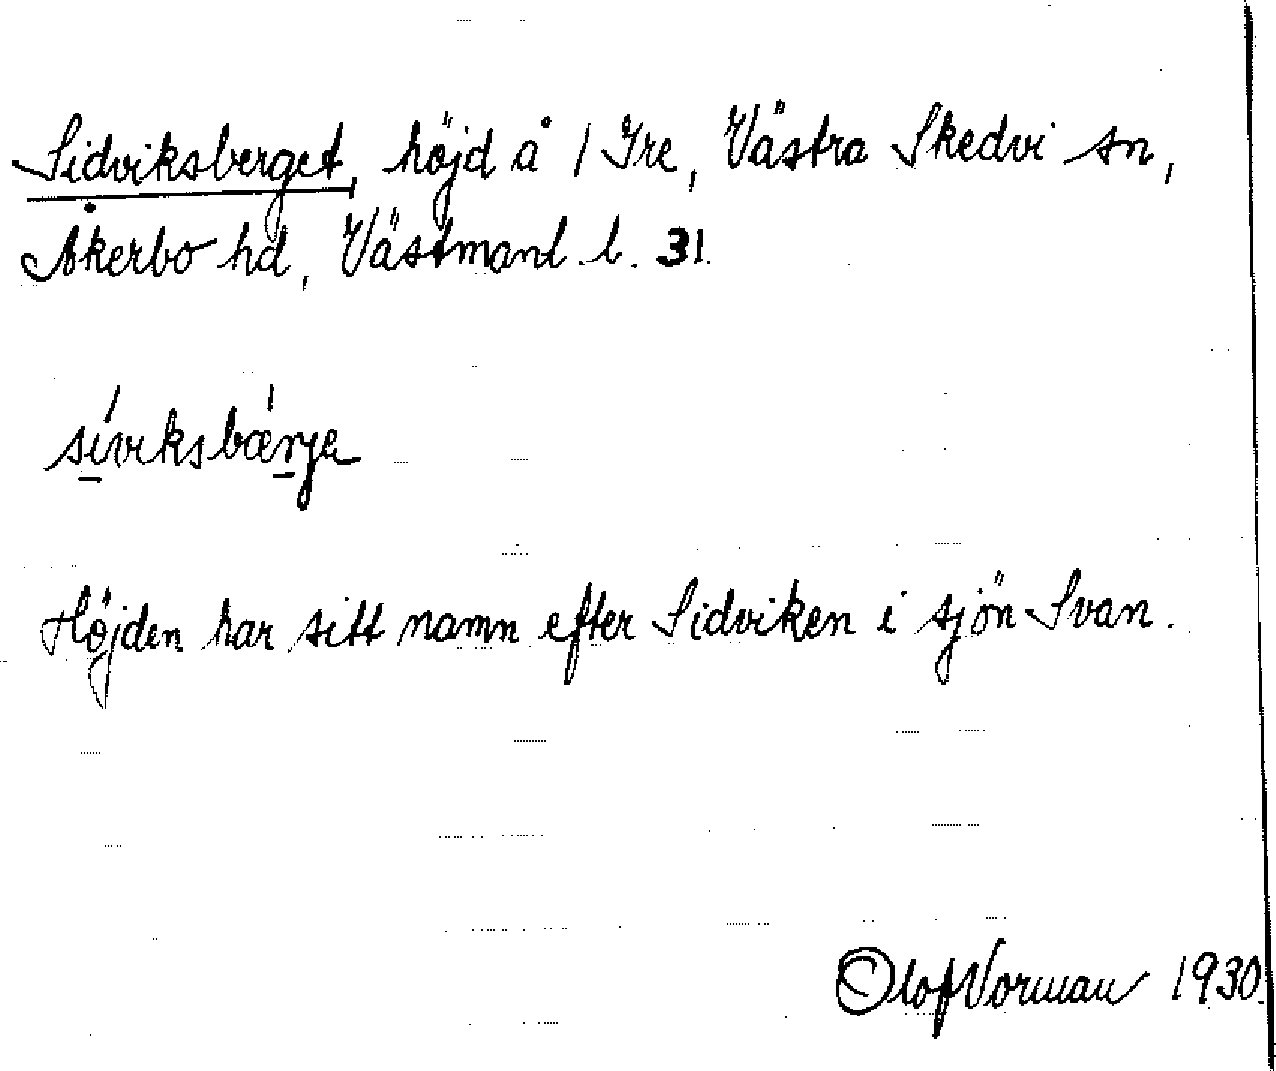 Sidviksberget, höjd å 1 Yre, Västra Skedvi sn,
Åkerbo hd, Västmanl. l. 31.
sívıksbæ̀rjɐ
Höjden har sitt namn efter Sidviken i sjön Svan.
Olof Vorman 1930.